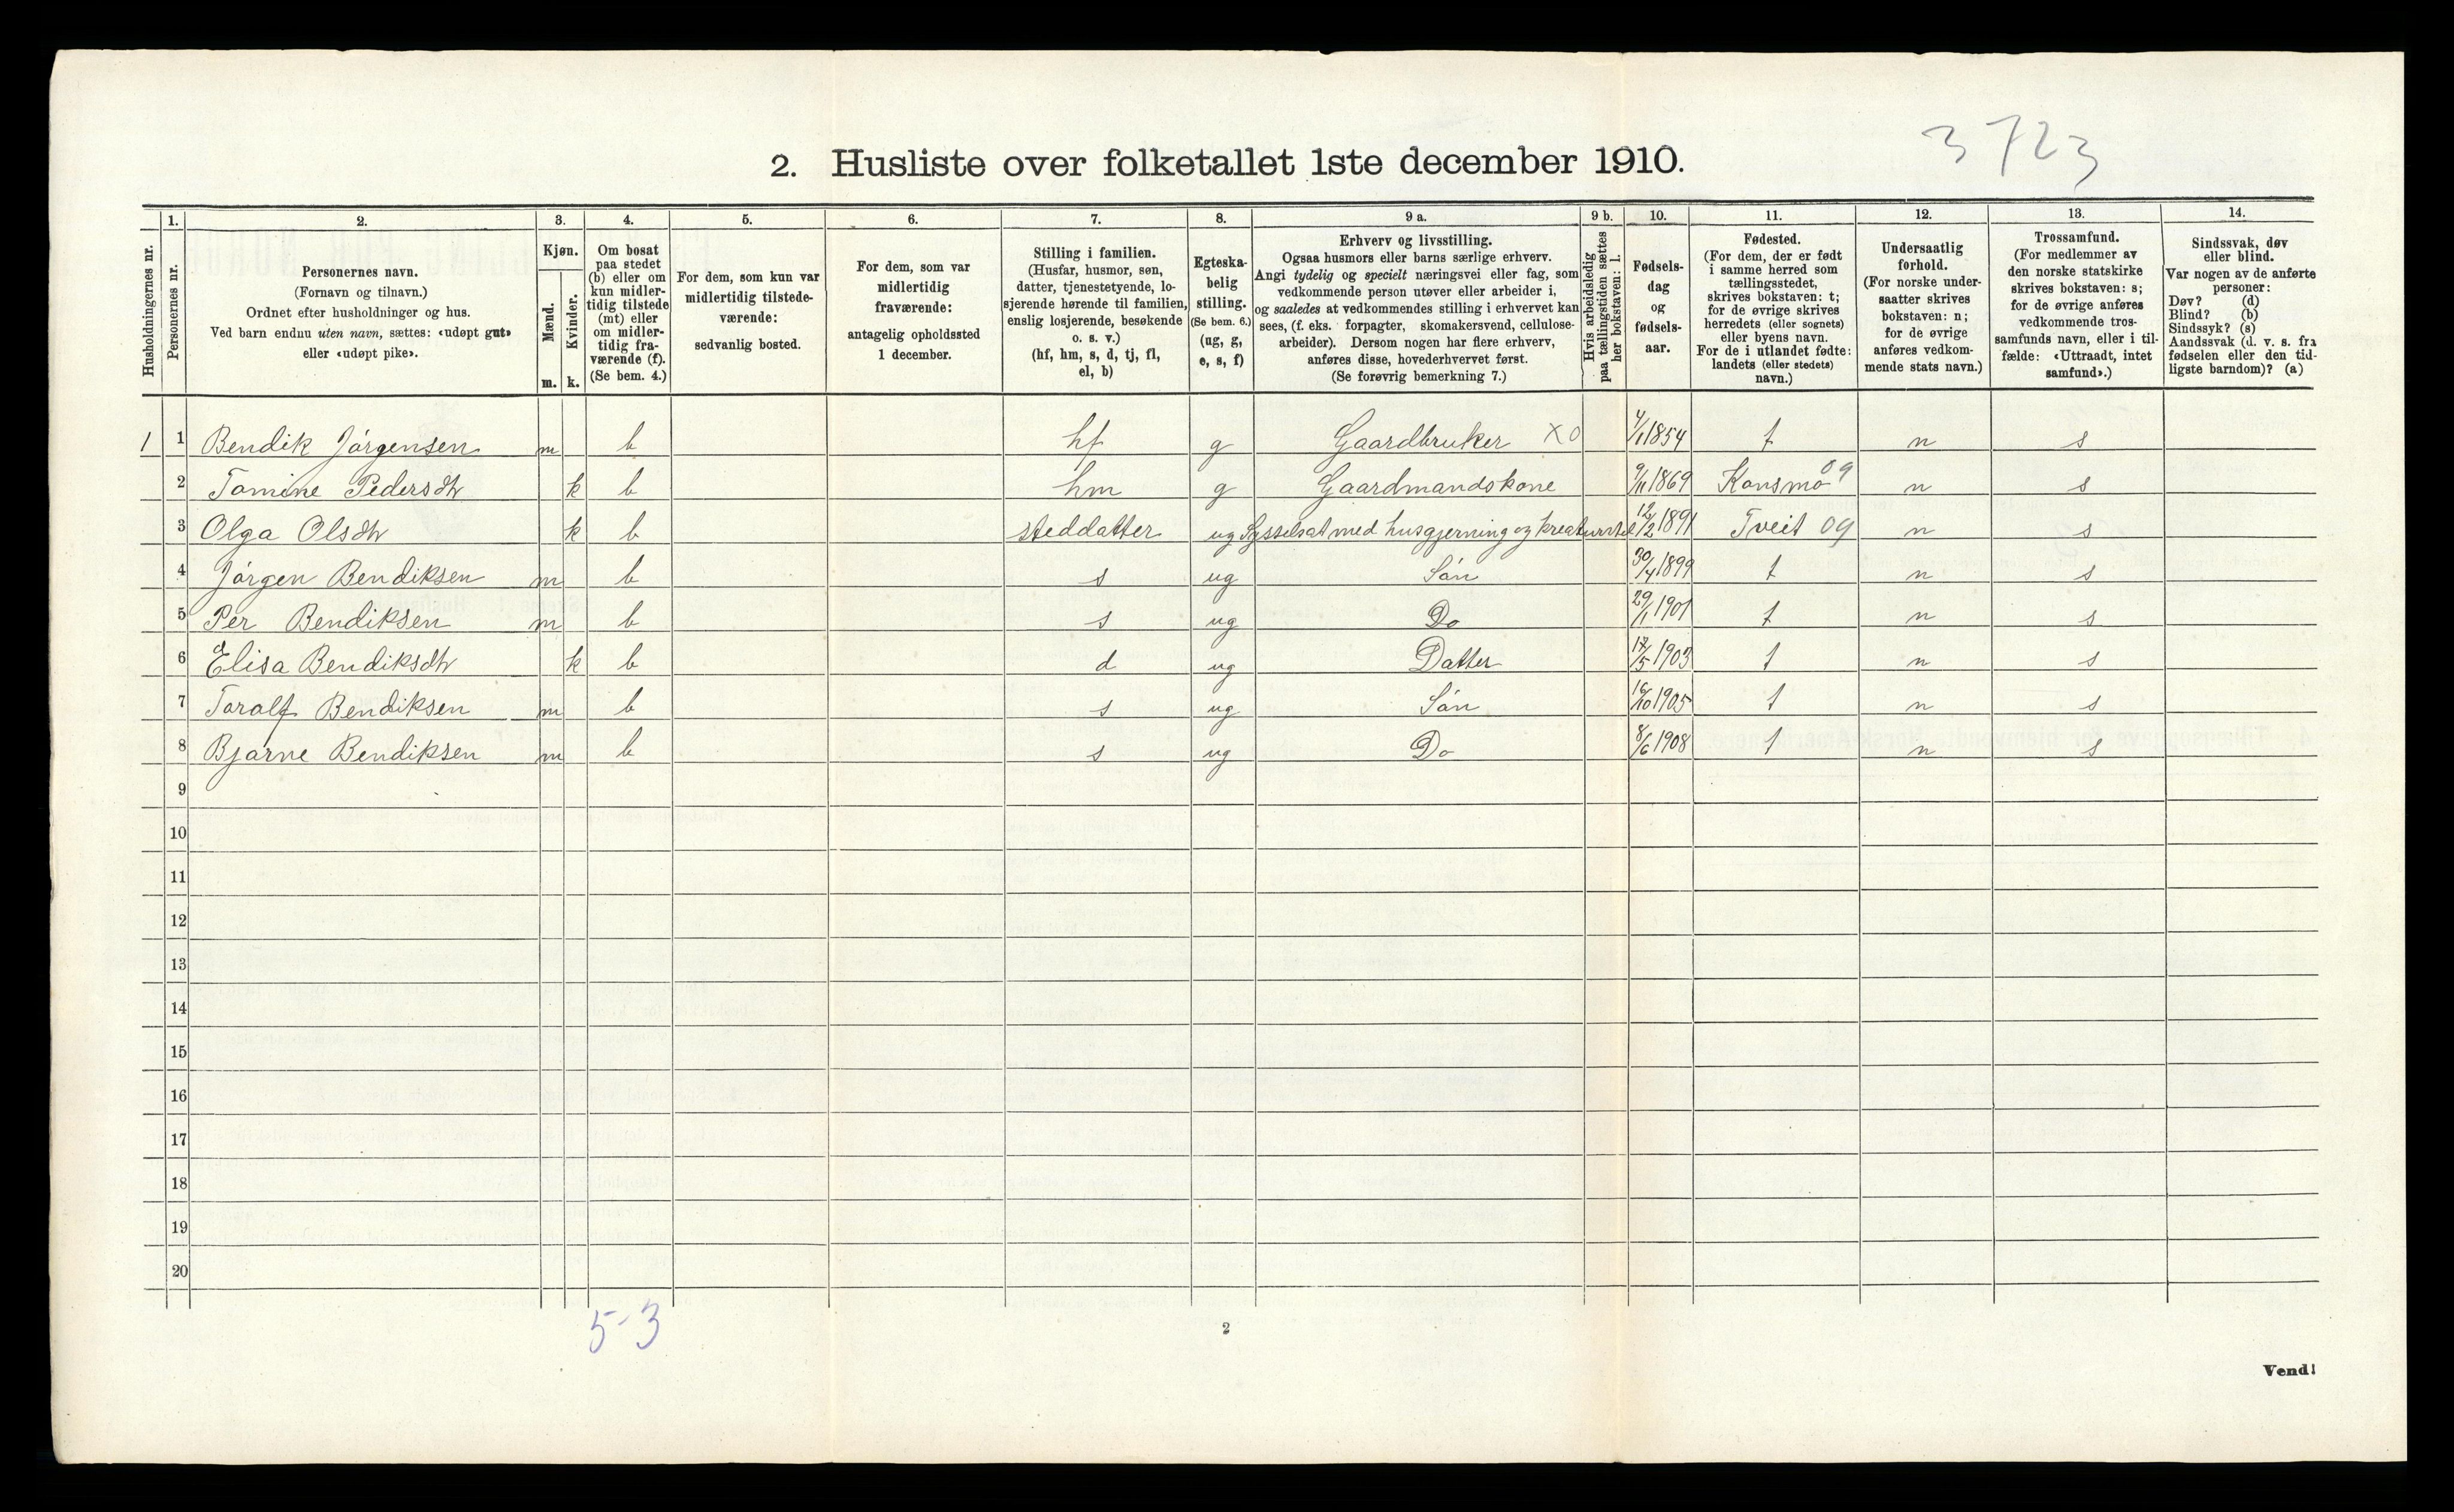 3723
2. Husliste over folketallet 1ste december 1910.
Husholdningernes nr.
1. Personernes nr.
2. Personernes navn.
(Fornavn og tilnavn.)
Ordnet efter husholdninger og hus.
Ved barn endnu uten navn, sættes: «udøpt gut»
eller «udøpt pike».
3. Kjøn.
Mænd. m.
Kvinder. k.
4. Om bosat
paa stedet
(b) eller om
kun midler-
tidig tilstede
(mt) eller
om midler-
tidig fra-
værende (f).
(Se bem. 4.)
5. For dem, som kun var
midlertidig tilstede-
værende:
sedvanlig bosted.
6. For dem, som var
midlertidig
fraværende:
antagelig opholdssted
1 december.
7. Stilling i familien.
(Husfar, husmor, søn,
datter, tjenestetyende, lo-
sjerende hørende til familien,
enslig losjerende, besøkende
o. s. v.)
(hf, hm, s, d, tj, fl,
el, b)
8. Egteska-
belig
stilling.
(Se bem. 6.)
(ug, g,
e, s, f)
9 a. Erhverv og livsstilling.
Ogsaa husmors eller barns særlige erhverv.
Angi tydelig og specielt næringsvei eller fag, som
vedkommende person utøver eller arbeider i,
og saaledes at vedkommendes stilling i erhvervet kan
sees, (f. eks. forpagter, skomakersvend, cellulose-
arbeider). Dersom nogen har flere erhverv,
anføres disse, hovederhvervet først.
(Se forøvrig bemerkning 7.)
9 b. Hvis arbeidsledig
paa tællingstiden sættes
her bokstaven: l.
10. Fødsels-
dag
og
fødsels-
aar.
11. Fødested.
(For dem, der er født
i samme herred som
tællingsstedet,
skrives bokstaven: t;
for de øvrige skrives
herredets (eller sognets)
eller byens navn.
For de i utlandet fødte:
landets (eller stedets)
navn.)
12. Undersaatlig
forhold.
(For norske under-
saatter skrives
bokstaven: n;
for de øvrige
anføres vedkom-
mende stats navn.)
13. Trossamfund.
(For medlemmer av
den norske statskirke
skrives bokstaven: s;
for de øvrige anføres
vedkommende tros-
samfunds navn, eller i til-
fælde: «Uttraadt, intet
samfund».)
14. Sindssvak, døv
eller blind.
Var nogen av de anførte
personer:
Døv? (d)
Blind? (b)
Sindssyk? (s)
Aandssvak (d. v. s. fra
fødselen eller den tid-
ligste barndom)? (a)
1 1 Bendik Jörgensen m b hf g Gaardbruker X0 4/1 1854 t n s
2 Tomine Pedersdtr k b hm g Gaardmandskone 9/11 1869 Konsmo 09 n s
3 Olga Olsdtr k b steddatter ug Sysselsat med husgjerning og kreaturstel 12/2 1891 Tveit 09 n s
4 Jörgen Bendiksen m b s ug Sön 30/4 1899 t n s
5 Per Bendiksen m b s ug Do 29/1 1901 t n s
6 Elisa Bendiksdtr k b d ug Datter 17/5 1903 t n s
7 Toralf Bendiksen m b s ug Sön 16/10 1905 t n s
8 Bjarne Bendiksen m b s ug Do 8/6 1908 t n s
9
10
11
12
13
14
15
16
17
18
19
20
5-3
2
Vend!